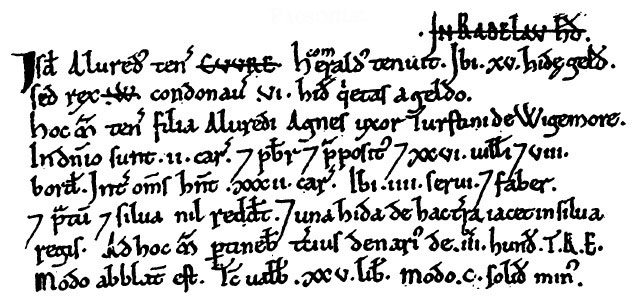 IN RADELAU HD.
Isd Aluredꝰ ten̄ CUURE. com Heraldꝰ tenuit. Ibi .xv. hidę geld.
sed rex .W. condonauit .vi. hid qetas a geldo.
Hoc m̄ ten̄ filia Aluredi Agnes uxor Turstini de Wigemore.
In dn̄io sunt .ii. car̄. ⁊ pbr ⁊ p̄positꝰ ⁊ xxvi. uill̄i ⁊ viii.
bord. Int om̄s hn̄t .xxxii. car̄. Ibi .iiii. serui. ⁊ faber.
⁊ p̄tū ⁊ silua nil reddt. ⁊ una hida de hac tra iacet in silua
regis. Ad hoc m̄ ptineb tcius denariꝰ de .iii. hund. T.R.E.
Modo ablat̄ est. Tc ualb .xxv. lib. Modo .c. solid minꝰ.